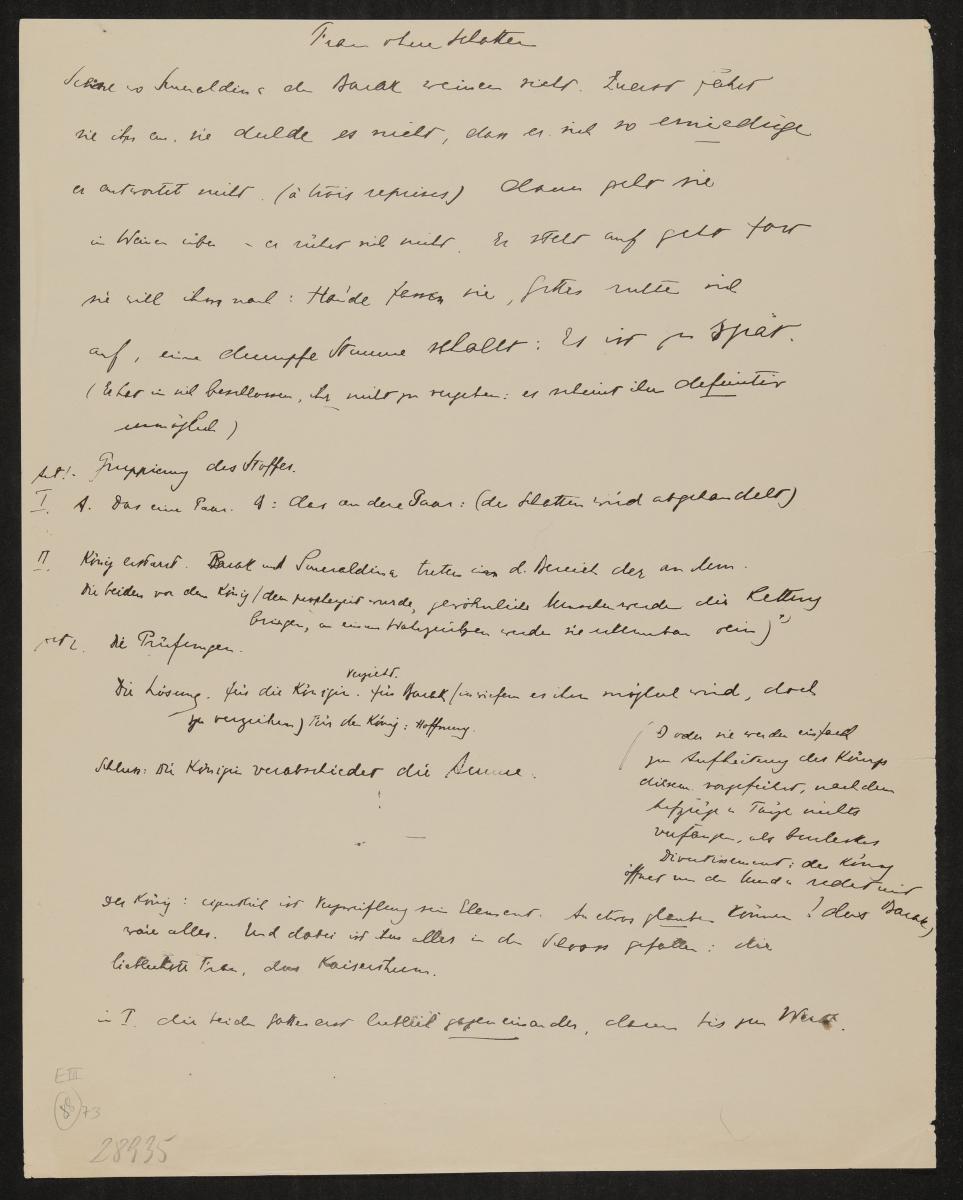 Frau ohne Schatten
Scene wo Smeraldina den Barak weinen sieht. Zuerst fährt
sie ihn an. sie dulde es nicht, dass er sich so erniedrige
er antwortet nicht. (à trois reprises) dann geht sie
in Weinen über – er rührt sich nicht. Er steht auf geht fort
sie will ihm nach: Hände fassen sie, Gittes sich
auf, eine dumpfe Stimme schallt: Es ist zu spät.
(Er hat in sich beschlossen, ihr nicht zu vergeben: es scheint ihm definitiv
unmöglich)
Act I. Gruppierung des Stoffes.
I. A. Das eine Paar. B: das andere Paar: (der Schatten wird abgehandelt)
II. König erstarrt. Barak und Smeraldina treten in d. Bereich der andern.
Die beiden vor dem König (dem prophezeit wurde, gewöhnliche Menschen werden die Rettung
bringen, an einem Wahrzeichen werden sie erkennbar sein)
Act 2. Die Prüfungen.
Die Lösung. für die Königin: Verzicht. für Barak (inwiefern es ihm möglich wird, doch
zu verzeihen) Für den König: Hoffnung.
Schluss: Die Königin verabschiedet die Amme.
) oder sie werden einfach
zur Aufheiterung des Königs
diesem vorgeführt, nachdem
Aufzüge u Tänze nichts
verfangen, als burleskes
Divertissement: der König
öffnet nun den Mund u redet mit
Barak)
Der König: eigentlich ist Verzweiflung sein Element. An etwas glauben können! das
wäre alles. Und dabei ist ihm alles in den Schooss gefallen: die
lieblichste Frau, das Kaiserthum.
in I. die beiden Gatten erst lieblich gegen einander, dann bis zur
E III
88 73
28935